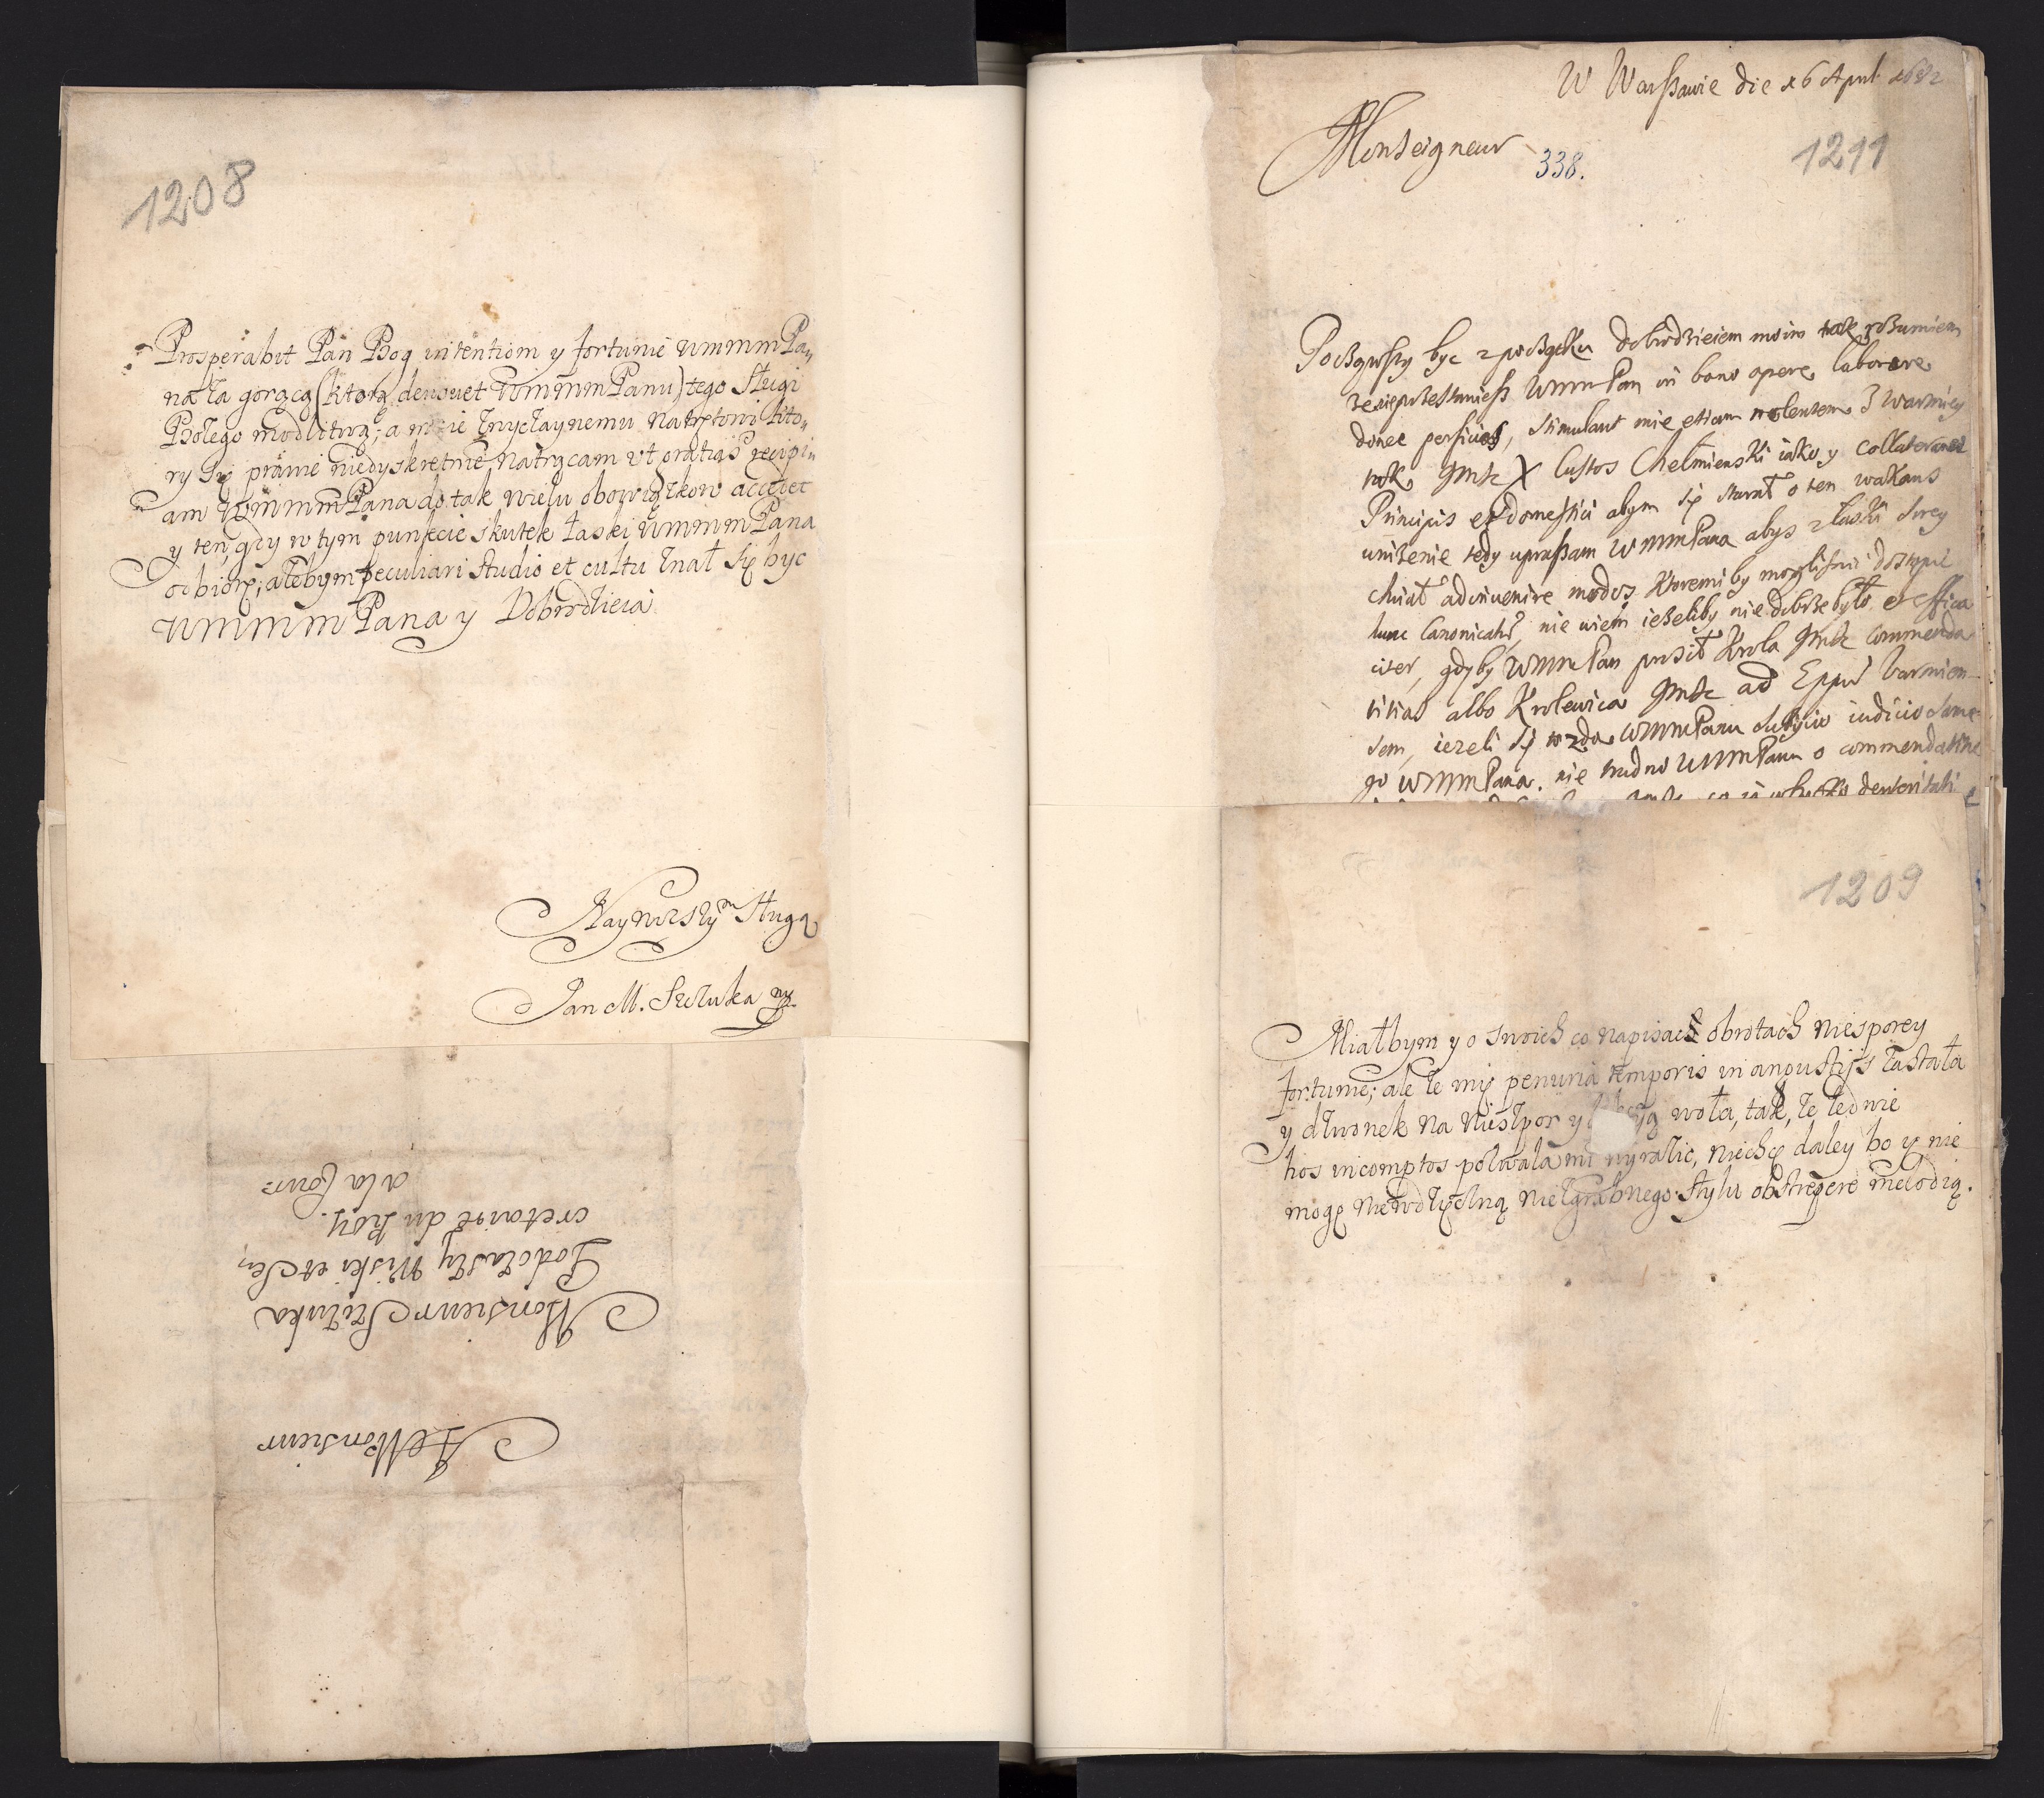 1208
Prosperabit Pan Bog intentiom y fortunie WmmmPa„
na za gorącą (ktorą devovet WmmmPanu) tego Slugi
Bożego modlitwą; a mnie zwyczaynemu Natrętowi kto„
ry Się prawie niedyskretnie Natrącam vt gratias recipi„
am WmmmPana do tak wielu obowiązkow accedet
y ten, gdy w tym punkcie skutek Łaski WmmmPana
odbiorę; ażebym peculiari Studio et cultu znał Się byc
WmmmPana y Dobrodzieia
Nayniższym Sługą
Jan M. Szczuka mp
A Monsieur
Monsieur Szczuka
Podczaszy Wiski et Se„
cretaire du Roy.
A la Cour
W Warszawie die 16 April 1682
Monseigneur
338.
1211
Począwszy byc z początku dobrodzieiem moim tak rozumiem
ze nieprzestaniesz WmmPan in bono opere laborare
donec perficias, stimulant mie etiam nolentem z Warmiey
tak Jmsc X Custos Chełmienski iako y collaterales
Principis et domestici abym się starał o ten wakans
unizenie tedy upraszam WmmPana abys z łaski swey
chciał adinvenire modos ktoremi by mogliśmi dostąpić
hunc Canonicatum, nie wiem iezeliby nie dobrze było et effica
citer, gdyby WmmPan prosił Krola Jmsc commenda
titias albo Krolewica Jmsc ad Eppum Varmien
sem, iezeli się to zda WmmPanu subijcio iudicio same
go WmmPana. nie trudno WmmPanu o commendatitie
1209
Miałbym y o swoich co napisać obrotach niesporey
fortunie; ale że mię penuria temporis in angustijs zastała
y dzwonek na Nieszpor y woła, tak, że ledwie
hos incomptos pozwala mi wyrazic, niechcę daley bo y nie
mogę niewdzięczną niezgrabnego Stylu obstrepere melodią.